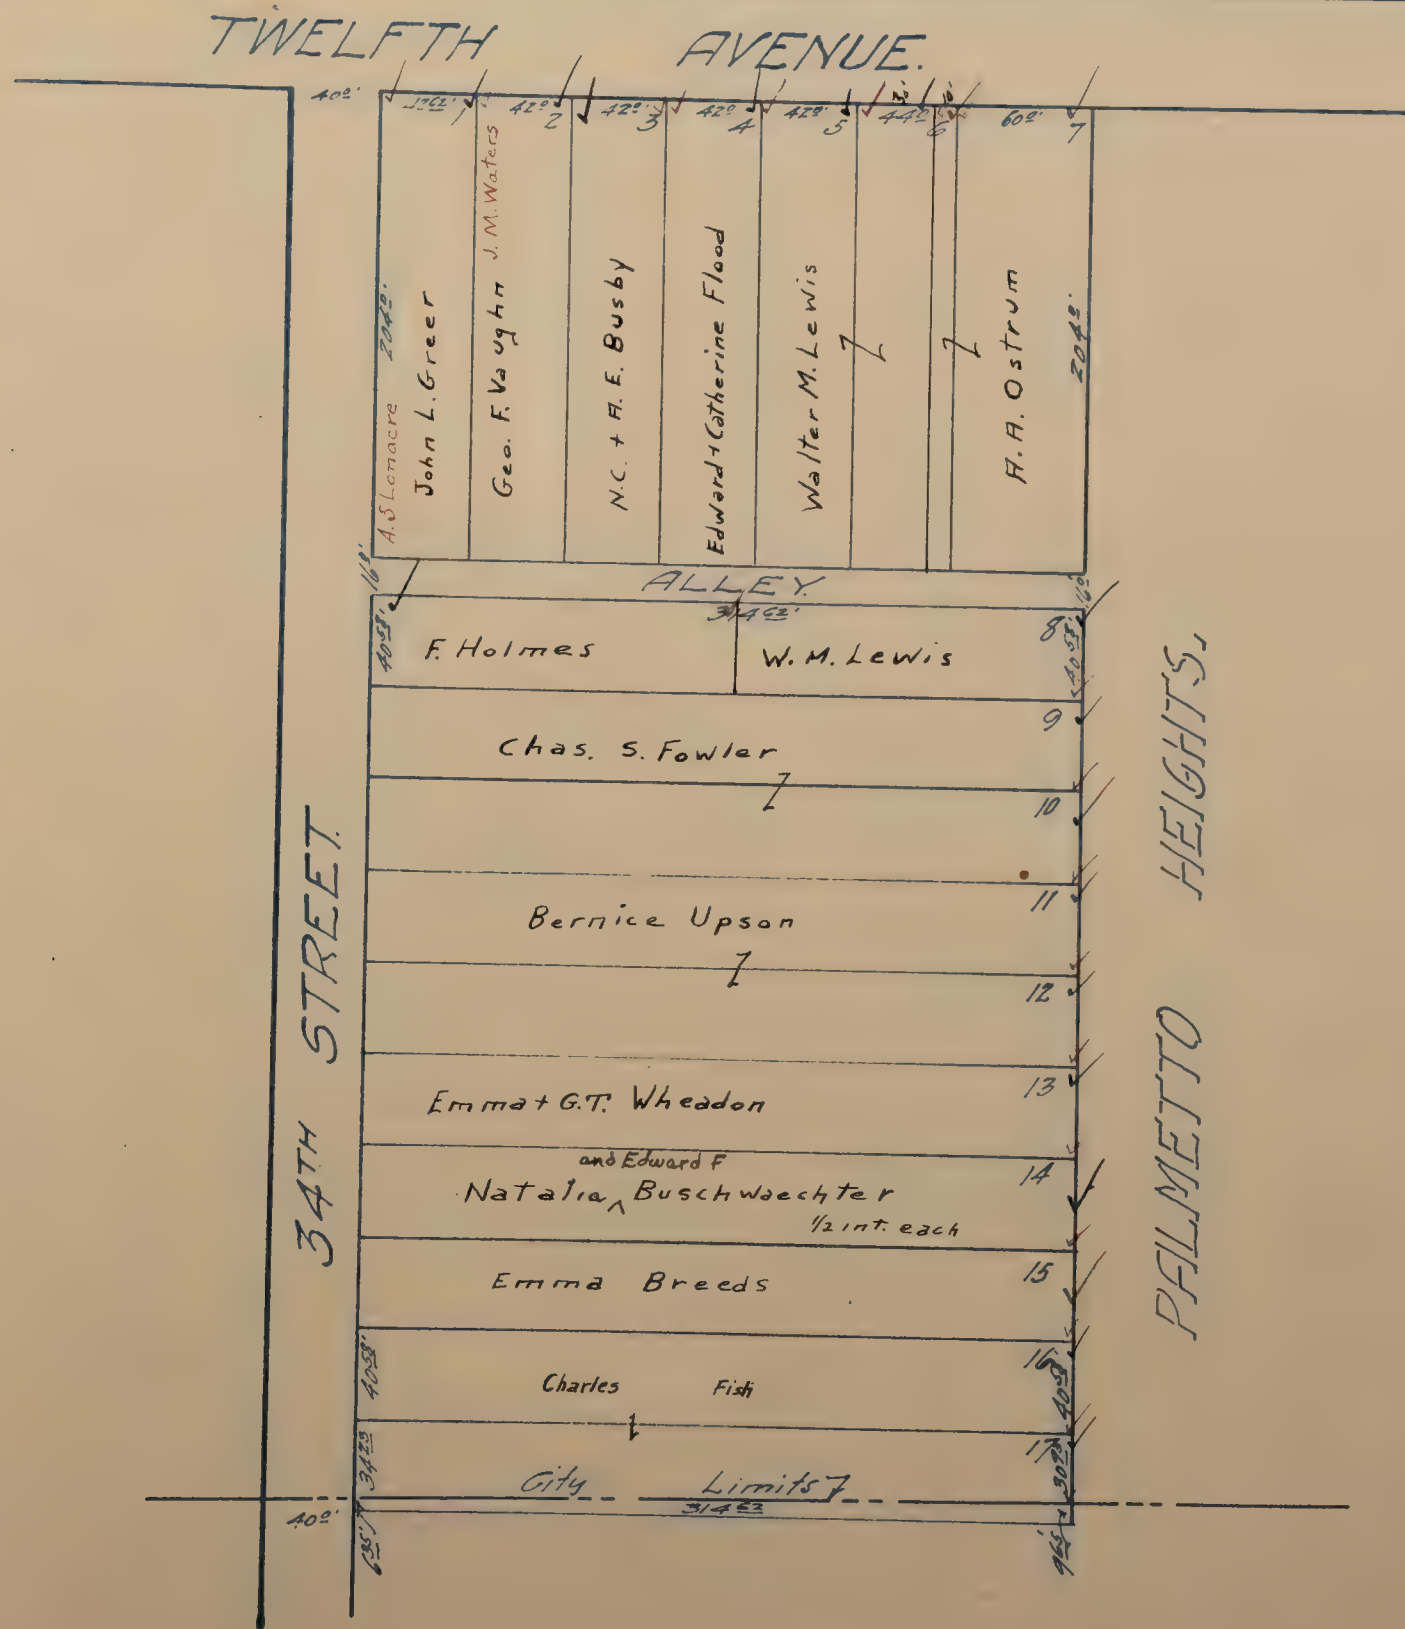 TWELFTH AVENUE.
40º'
42⁶²'
1
42º'
2
42º'
3
42º
4
42º'
5
44º
6
60º'
7
A. S Lonacre
204º'
John L. Greer
Geo. F. Vaughn
J. M. Waters
N.C. + A. E. Busby
Edward + Catherine Flood
Walter M. Lewis
A. A. Ostrum
204º'
16º'
ALLEY.
16º'
314⁶²'
40⁵⁸'
F. Holmes
W. M. Lewis
8
40⁵⁸'
Chas. S. Fowler
9
10
Bernice Upson
11
12
Emma + G.T. Wheadon
13
and Edward F
Natalia ^ Buschwaechter
14
1/2 int. each
Emma Breeds
15
40⁵⁸'
Charles Fish
16
40⁵⁸'
34²³
17
30⁹³'
City Limits
314⁶²
40º'
6³⁵'
9⁶⁵'
34TH STREET.
PALMETTO HEIGHTS,